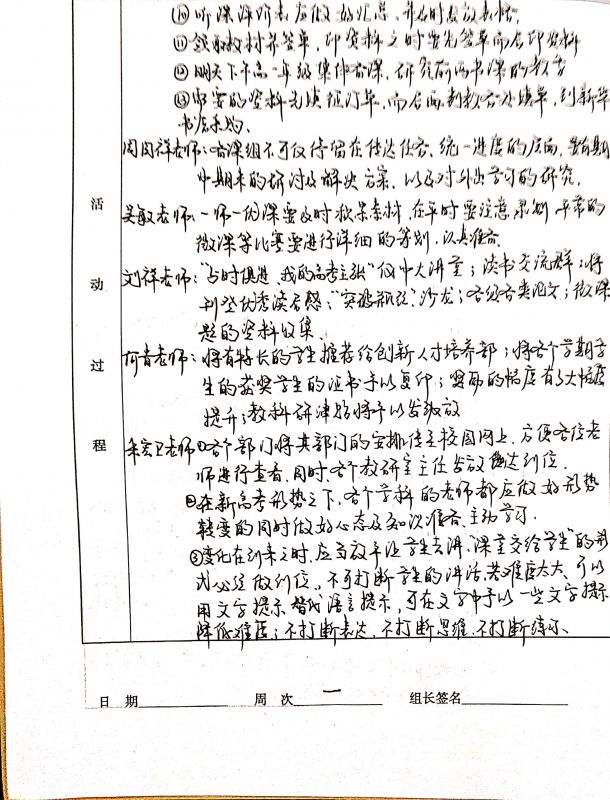 ⑩听课评课表应做好汇总,并及时发放表格.
⑪领取教材并签单,印资料之时需先签单而后印资料
⑫明天下午高一年级集体备课,研究前两节课的教学
⑬需要的资料先填征订单,而后再到教务处填单,到新华
书店采购.
周国祥老师:备课组不可仅停留在传达任务、统一进度的层面,要有期
中期末的研讨及解决方案,以及对外出学习的研究.
吴敏老师:一师一优课要及时积累素材,在平时要注意录制,平常的
微课等比赛要进行详细的筹划,认真准备.
刘祥老师:"与时俱进,我的高考主张"仪中大讲堂;读书交流群;将
刊登优秀读后感;"突破瓶颈"沙龙;各级各类论文;微课
题的资料收集.
何青老师:将有特长的学生推荐给创新人才培养部;将各个学期学
生的获奖学生的证书予以复印;奖励的幅度有了大幅度
提升;教科研津贴将予以发放
朱宏卫老师①各个部门将其部门的安排传至校园网上,方便各位老
师进行查看,同时,各个教研室主任发放传达到位.
②在新高考形势之下,各个学科的老师都应做好形势
转变的同时做好心态及知识准备,主动学习.
③变化在到来之时,应当放手让学生去讲,"课堂交给学生"的形
式必须做到位,不可打断学生的讲话,若难度太大,可以
用文字提示替代语言提示,可在文字中予以一些文字提示
降低难度;不打断表达、不打断思维、不打断练习.
活
动
过
程
日 期 周 次 一 组长签名